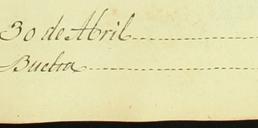 30 de Abril
Buelva